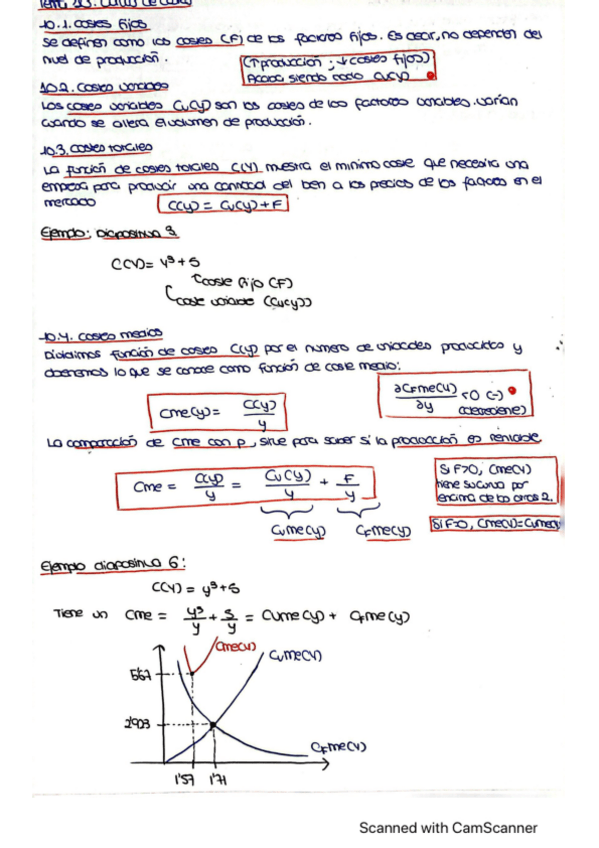 10.1. costes fijos
se definen como los costes (F) de los factores fijos. Es decir, no dependen del
nivel de producción.
(↑producción ; ↓costes fijos)
Acaba siendo todo Cv(y)
10.2. Costes variables
Los costes variables Cv(y) son los costes de los factores variables. varían
cuando se altera el volumen de producción.
10.3. costes totales
La función de costes totales C(Y) muestra el mínimo coste que necesita una
empresa para producir una cantidad del bien a los precios de los factores en el
mercado
C(y) = Cv(y) + F
Ejemplo: Diapositiva 3
C(Y) = y³ + 5
coste fijo (F)
coste variable (Cv(y))
10.4. costes medios
Dividimos función de costes C(y) por el número de unidades producidas y
obtenemos lo que se conoce como función de coste medio:
Cme(y) = C(y)/y
∂CFme(Y)/∂y <0 (-)
(decreciente)
La comparación de Cme con p, sirve para saber si la producción es rentable
Cme = C(y)/y = Cv(Y)/y + F/y
Cvme(y) CFme(y)
Si F>0, Cme(Y)
tiene su curva por
encima de las otras 2.
Si F=0, Cme(Y)=Cvme(Y)
Ejemplo diapositiva 6:
C(Y) = y³ + 5
Tiene un Cme = y³/y + 5/y = Cvme(y) + CFme(y)
Cme(Y)
Cvme(Y)
5'67
2'903
CFme(Y)
1'57 1'71
Scanned with CamScanner